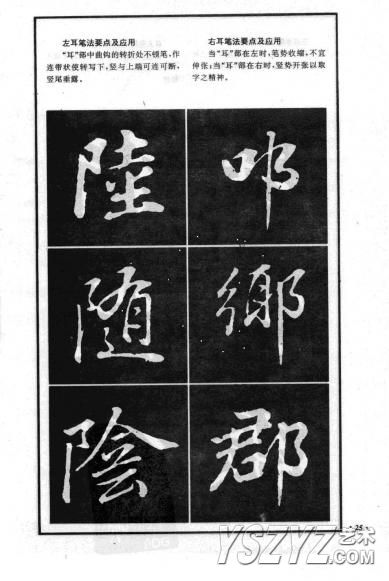 左耳笔法要点及应用
“耳”部中曲钩的转折处不顿笔,作
连带状使转写下,竖与上端可连可断,
竖尾垂露。
右耳笔法要点及应用
当“耳”部在左时,笔势收缩,不宜
伸张;当“耳”部在右时,竖势开张以取
字之精神。
陸
随
陰
鄉
郡
·25·
YSZYZ艺术
.com